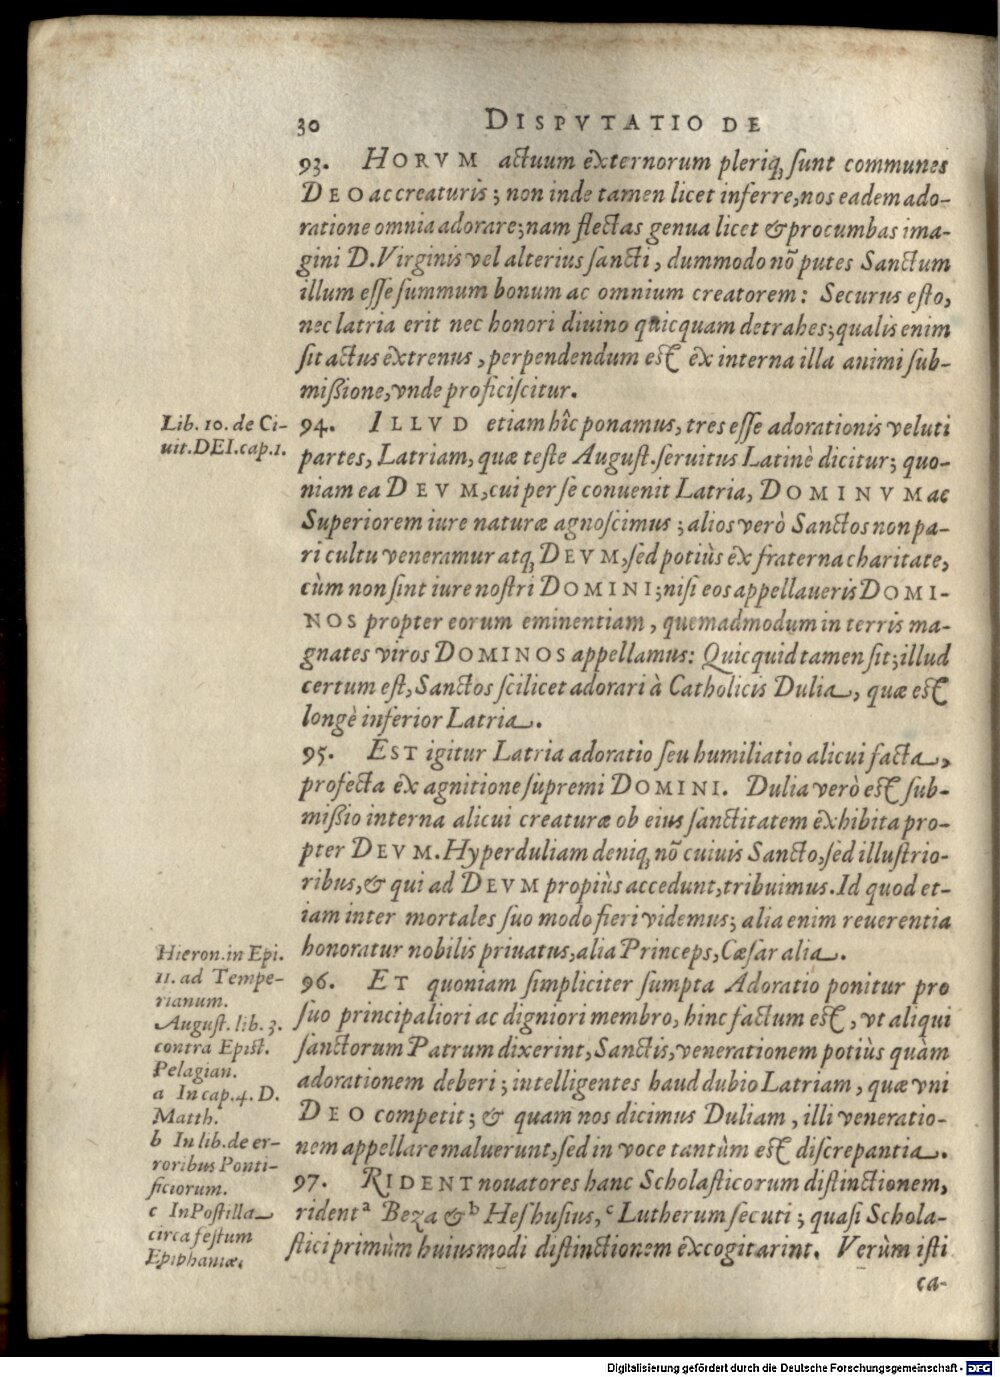 30 DISPVTATIO DE
93. HORVM actuum externorum pleriq; sunt communes
DEO ac creaturis; non inde tamen licet inferre, nos eadem ado-
ratione omnia adorare; nam flectas genua licet & procumbas ima-
gini D. Virginis vel alterius sancti, dummodo nõ putes Sanctum
illum esse summum bonum ac omnium creatorem: Securus esto,
nec latria erit nec honori diuino quicquam detrahes; qualis enim
sit actus extrenus, perpendendum est ex interna illa animi sub-
mißione, vnde proficiscitur.
Lib. 10. de Ci-
uit. DEI. cap. 1.
94. ILLVD etiam hîc ponamus, tres esse adorationis veluti
partes, Latriam, quæ teste August. seruitus Latinè dicitur; quo-
niam ea DEVM, cui per se conuenit Latria, DOMINVM ac
Superiorem iure naturæ agnoscimus; alios verò Sanctos non pa-
ri cultu veneramur atq; DEVM, sed potiùs ex fraterna charitate,
cùm non sint iure nostri DOMINI; nisi eos appellaueris DOMI-
NOS propter eorum eminentiam, quemadmodum in terris ma-
gnates viros DOMINOS appellamus: Quicquid tamen sit; illud
certum est, Sanctos scilicet adorari à Catholicis Dulia, quæ est
longè inferior Latria.
95. EST igitur Latria adoratio seu humiliatio alicui facta,
profecta ex agnitione supremi DOMINI. Dulia verò est sub-
mißio interna alicui creaturæ ob eius sanctitatem exhibita pro-
pter DEVM. Hyperduliam deniq; nõ cuiuis Sancto, sed illustrio-
ribus, & qui ad DEVM propiùs accedunt, tribuimus. Id quod et-
iam inter mortales suo modo fieri videmus; alia enim reuerentia
honoratur nobilis priuatus, alia Princeps, Cæsar alia.
Hieron. in Epi.
11. ad Tempe-
rianum.
August. lib. 3.
contra Epist.
Pelagian.
a In cap. 4. D.
Matth.
b In lib. de er-
roribus Ponti-
ficiorum.
c In Postilla
circa festum
Epiphaniæ.
96. ET quoniam simpliciter sumpta Adoratio ponitur pro
suo principaliori ac digniori membro, hinc factum est, vt aliqui
sanctorum Patrum dixerint, Sanctis, venerationem potiùs quàm
adorationem deberi; intelligentes haud dubio Latriam, quæ vni
DEO competit; & quam nos dicimus Duliam, illi veneratio-
nem appellare maluerunt, sed in voce tantùm est discrepantia.
97. RIDENT nouatores hanc Scholasticorum distinctionem,
rident a Beza & b Heshusius, c Lutherum secuti; quasi Schola-
stici primùm huiusmodi distinctionem excogitarint. Verùm isti
ca-
Digitalisierung gefördert durch die Deutsche Forschungsgemeinschaft - DFG